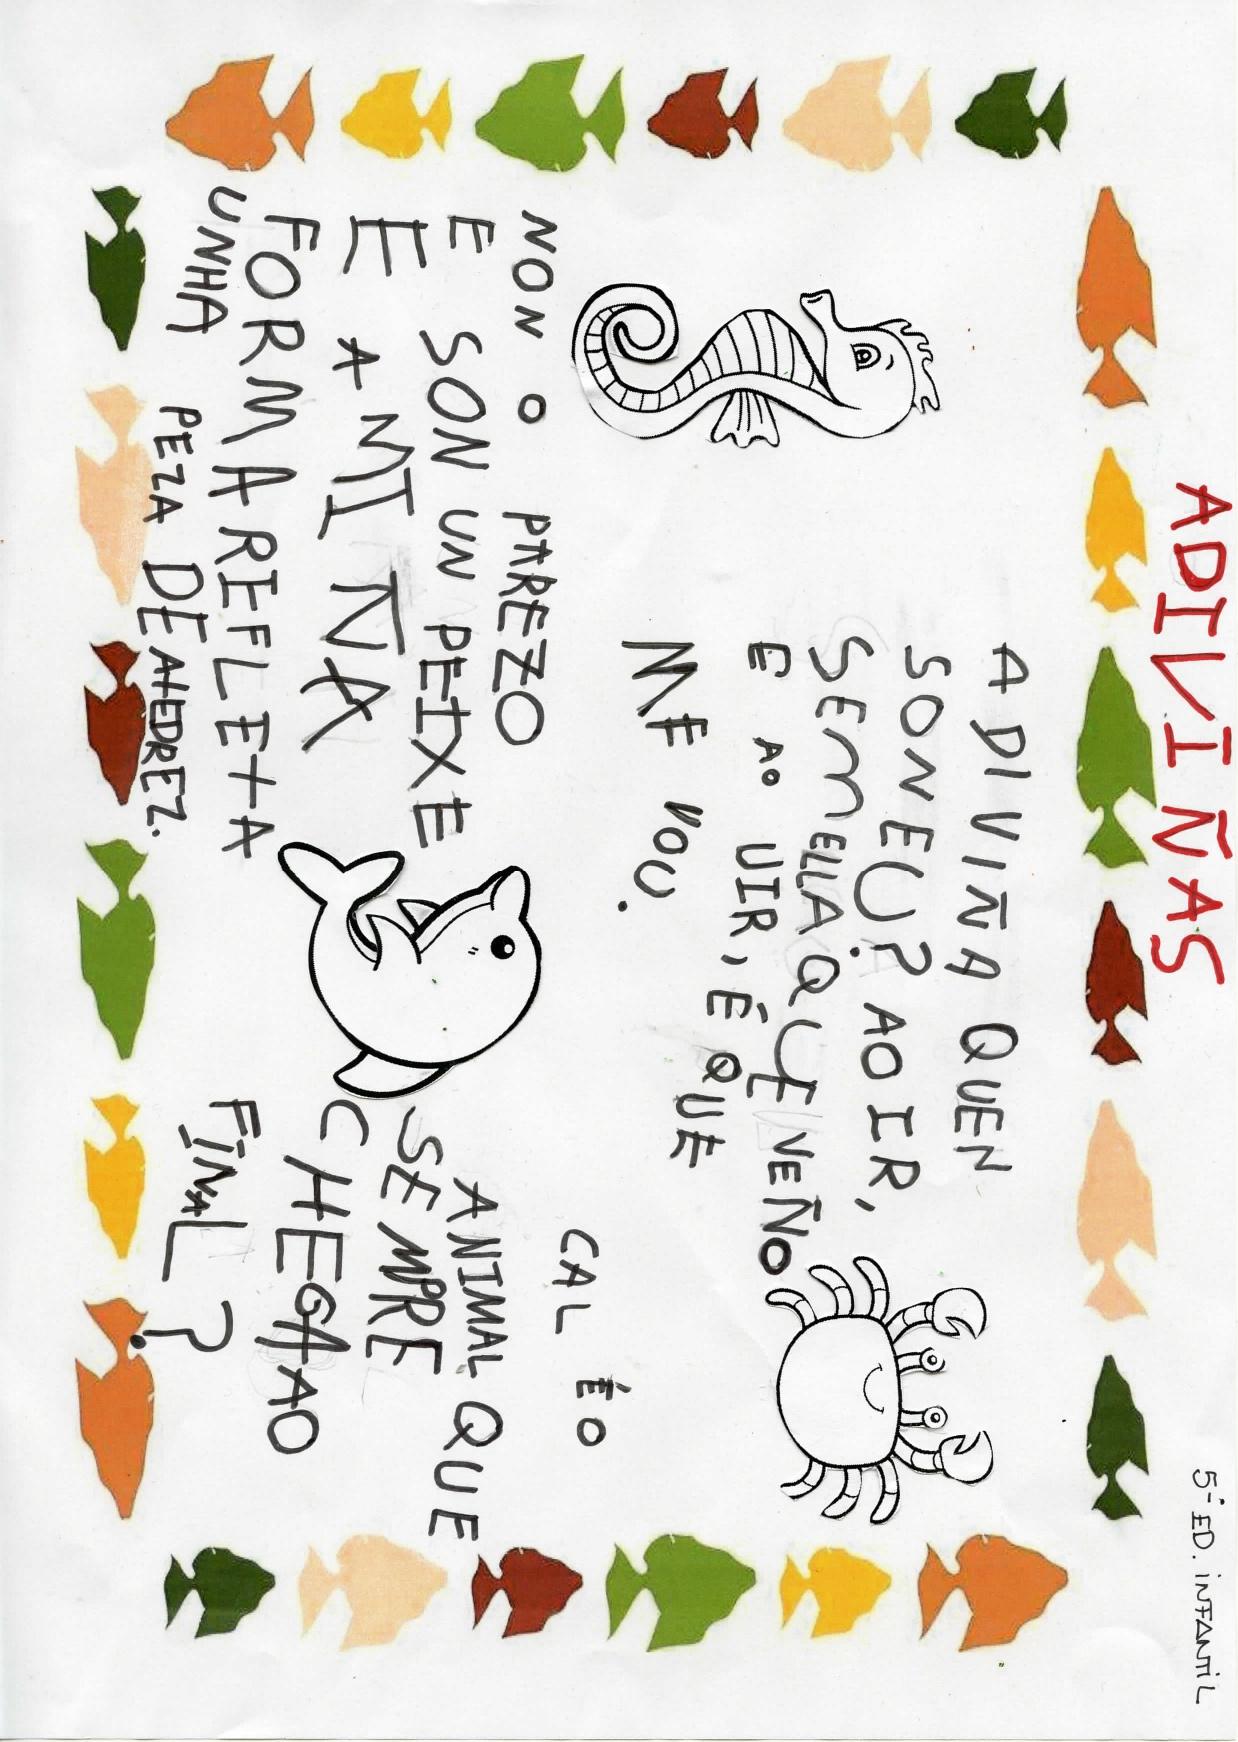 ADIVIÑAS
5º ED. iNFANTiL
ADIVIÑA QUEN
SON EU? AO IR,
SEMELLA QUE VEÑO
E AO VIR, É QUE
ME VOU.
NON O PAREZO
E SON UN PEIXE
E A MIÑA
FORMA REFLEXA
UNHA PEZA DE AHEDREZ.
CAL É O
ANIMAL QUE
SEMPRE
CHEGA AO
FINAL?